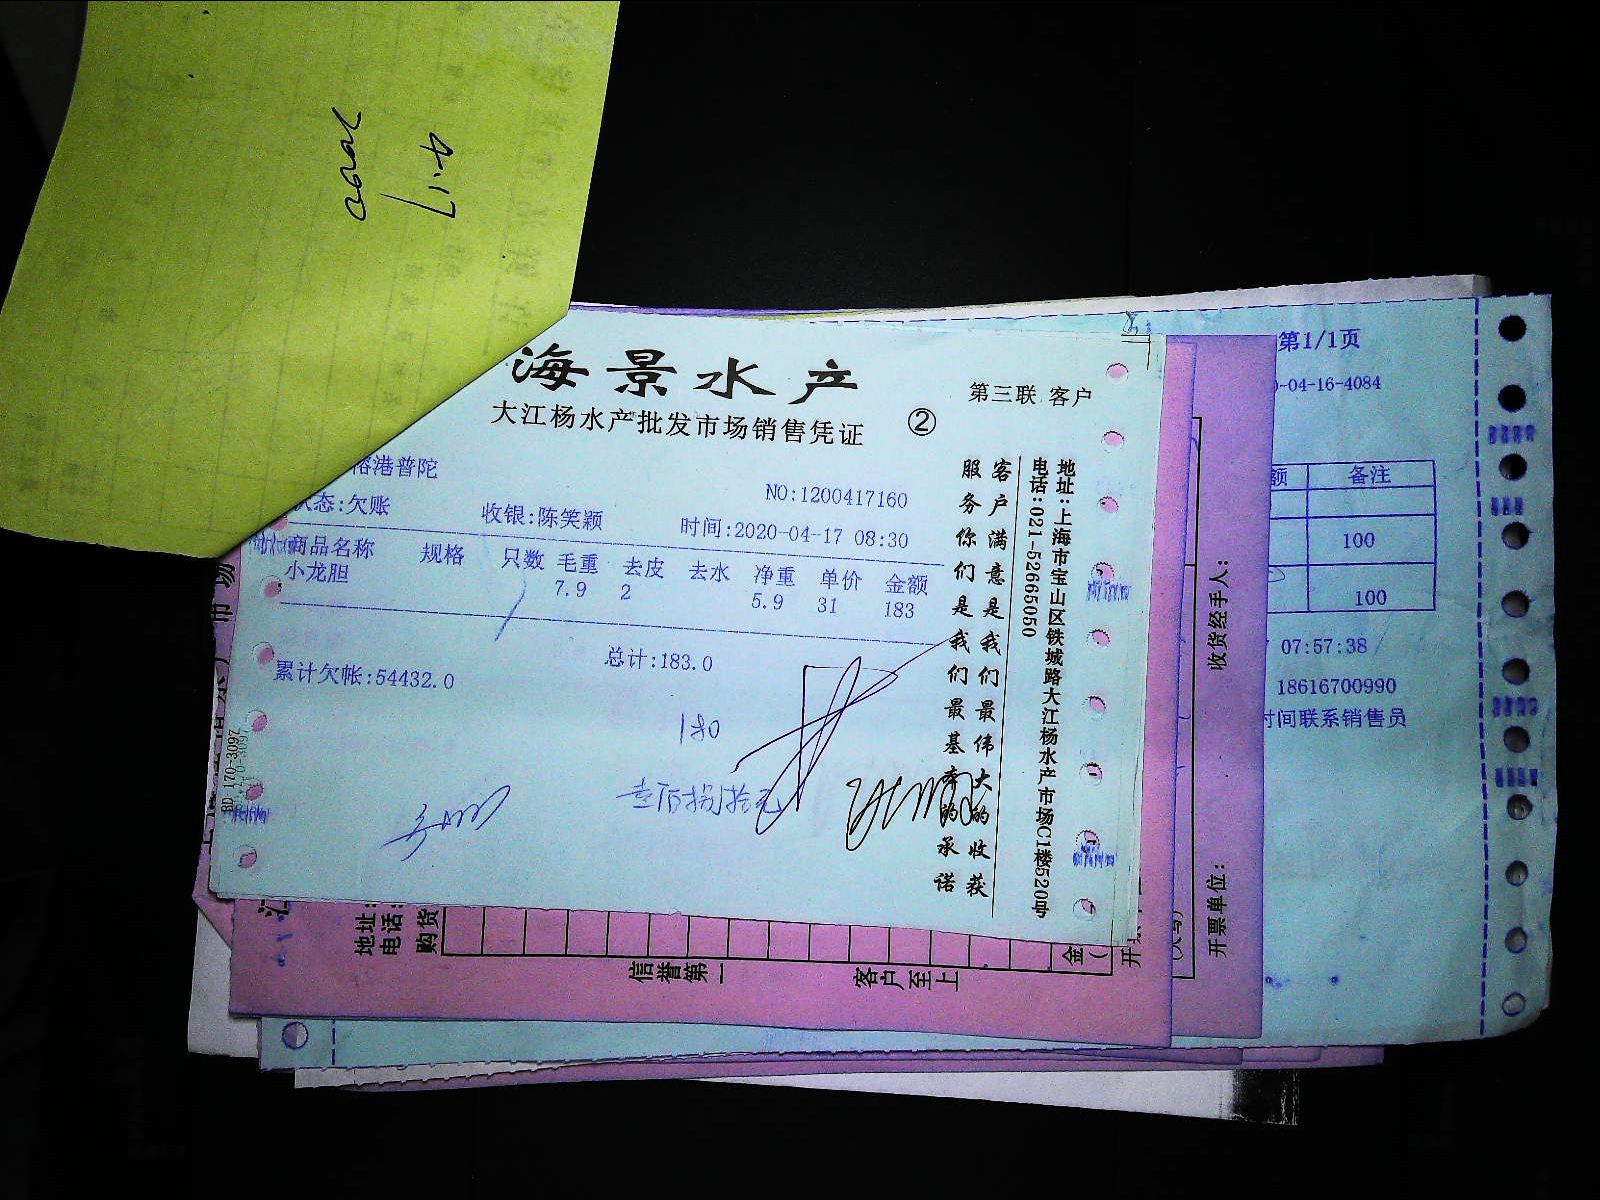 4.17
海景水产
第三联 客户
大江杨水产批发市场销售凭证 ②
港普陀
NO:1200417160
态:欠账 收银:陈笑颖 时间:2020-04-17 08:30
商品名称 规格 只数 毛重 去皮 去水 净重 单价 金额
小龙胆 7.9 2 5.9 31 183
总计:183.0
累计欠帐:54432.0
180
壹佰捌拾元
客户满意是我们最伟大的收获
服务你们是我们最基本的承诺
地址:上海市宝山区铁城路大江杨水产市场C1楼520号
电话:021-52665050
BD 170-3097
第1/1页
-04-16-4084
额 备注
100
100
07:57:38
18616700990
时间联系销售员
收货经手人:
开票单位:
地址:
电话:
购货
信誉第一
客户至上
金